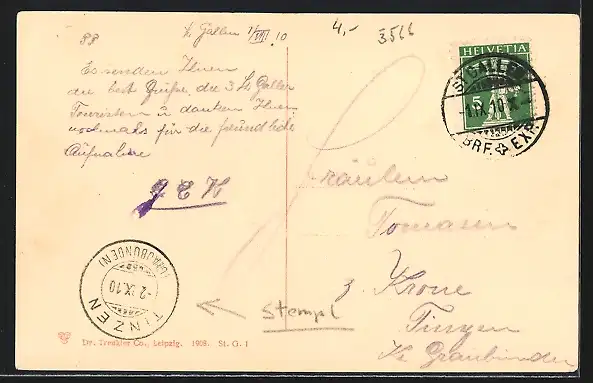 88
St. Gallen 1/VIII 10
4,-
3566
Es senden Ihnen
die best Grüße die 3 St. Galler
Touristen u danken Ihnen
nochmals für die freundliche
Aufnahme
HELVETIA
5
ST. GALLEN
1.IX.10
BRF. EXP.
Fräulein
Tomasen
z. Krone
Tinzen
Kt Graubünden
(GRAUBÜNDEN)
-2.IX.10
TINZEN
Stempl
Dr. Trenkler Co., Leipzig. 1908. St. G. 1